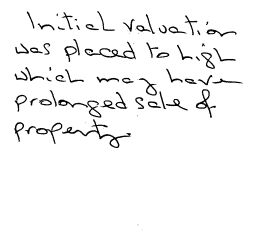 Initial valuation
was placed to high
which may have
prolonged sale of
property.